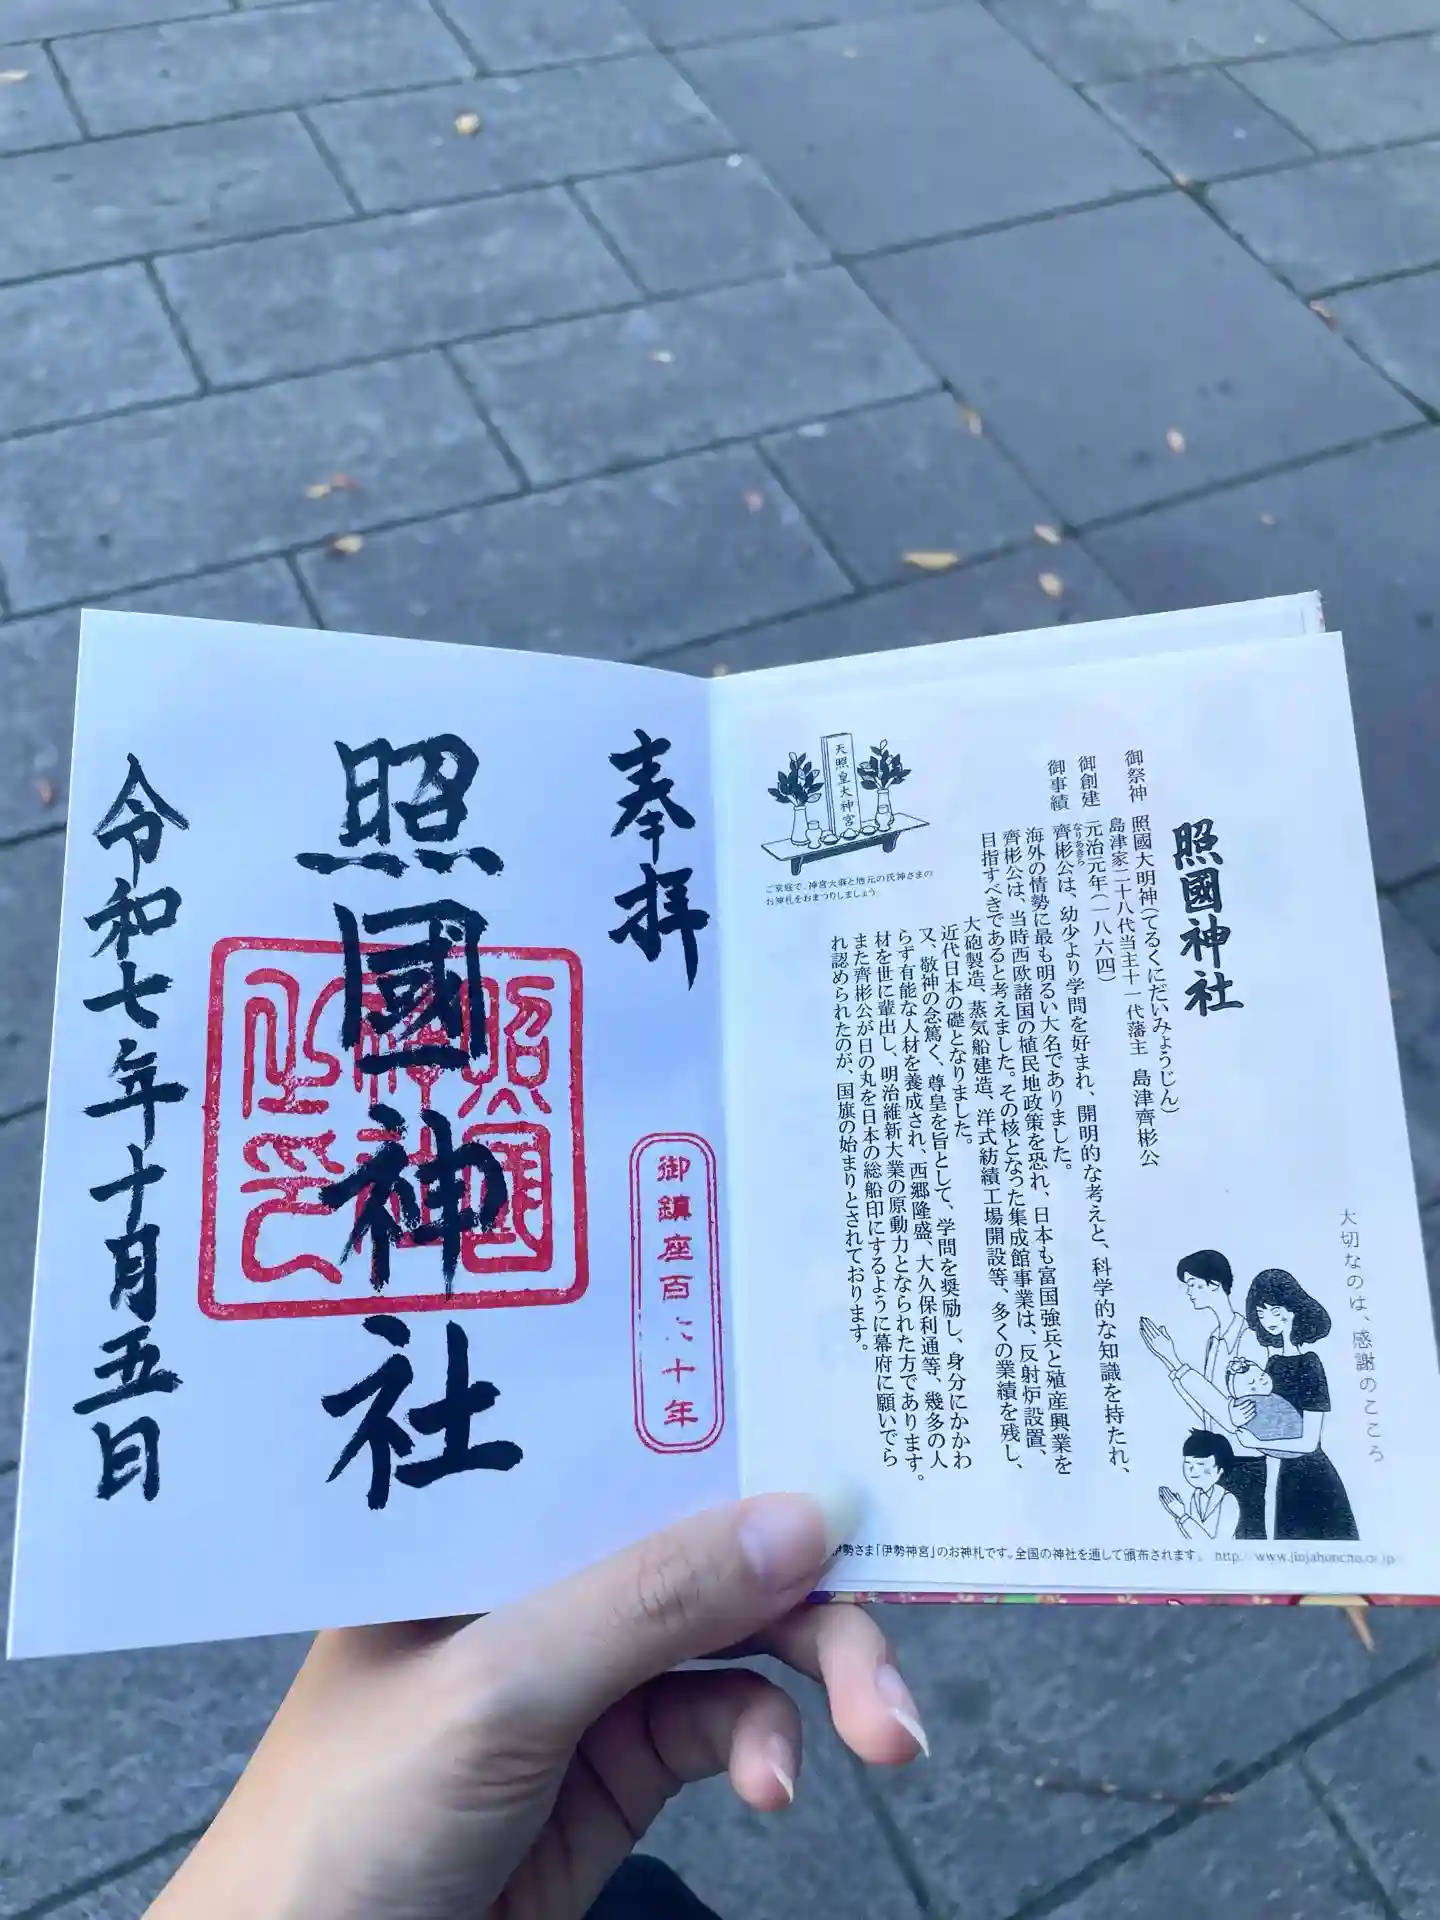 奉拝
照國神社
令和七年十月五日
照國神社
御鎮座百六十年
大切なのは、感謝のこころ
照國神社
御祭神 照國大明神(てるくにだいみょうじん)
島津家二十八代当主十一代藩主 島津齊彬公
御創建 元治元年(一八六四)
御事績 齊彬公は、幼少より学問を好まれ、開明的な考えと、科学的な知識を持たれ、
なりあきら
海外の情勢に最も明るい大名でありました。
齊彬公は、当時西欧諸国の植民地政策を恐れ、日本も富国強兵と殖産興業を
目指すべきであると考えました。その核となった集成館事業は、反射炉設置、
大砲製造、蒸気船建造、洋式紡績工場開設等、多くの業績を残し、
近代日本の礎となりました。
又、敬神の念篤く、尊皇を旨として、学問を奨励し、身分にかかわ
らず有能な人材を養成され、西郷隆盛、大久保利通等、幾多の人
材を世に輩出し、明治維新大業の原動力となられた方であります。
また齊彬公が日の丸を日本の総船印にするように幕府に願いでら
れ認められたのが、国旗の始まりとされております。
天照皇大神宮
ご家庭で、神宮大麻と地元の氏神さまの
お神札をおまつりしましょう
伊勢さま「伊勢神宮」のお神札です。全国の神社を通して頒布されます。 http://www.jinjahoncho.or.jp